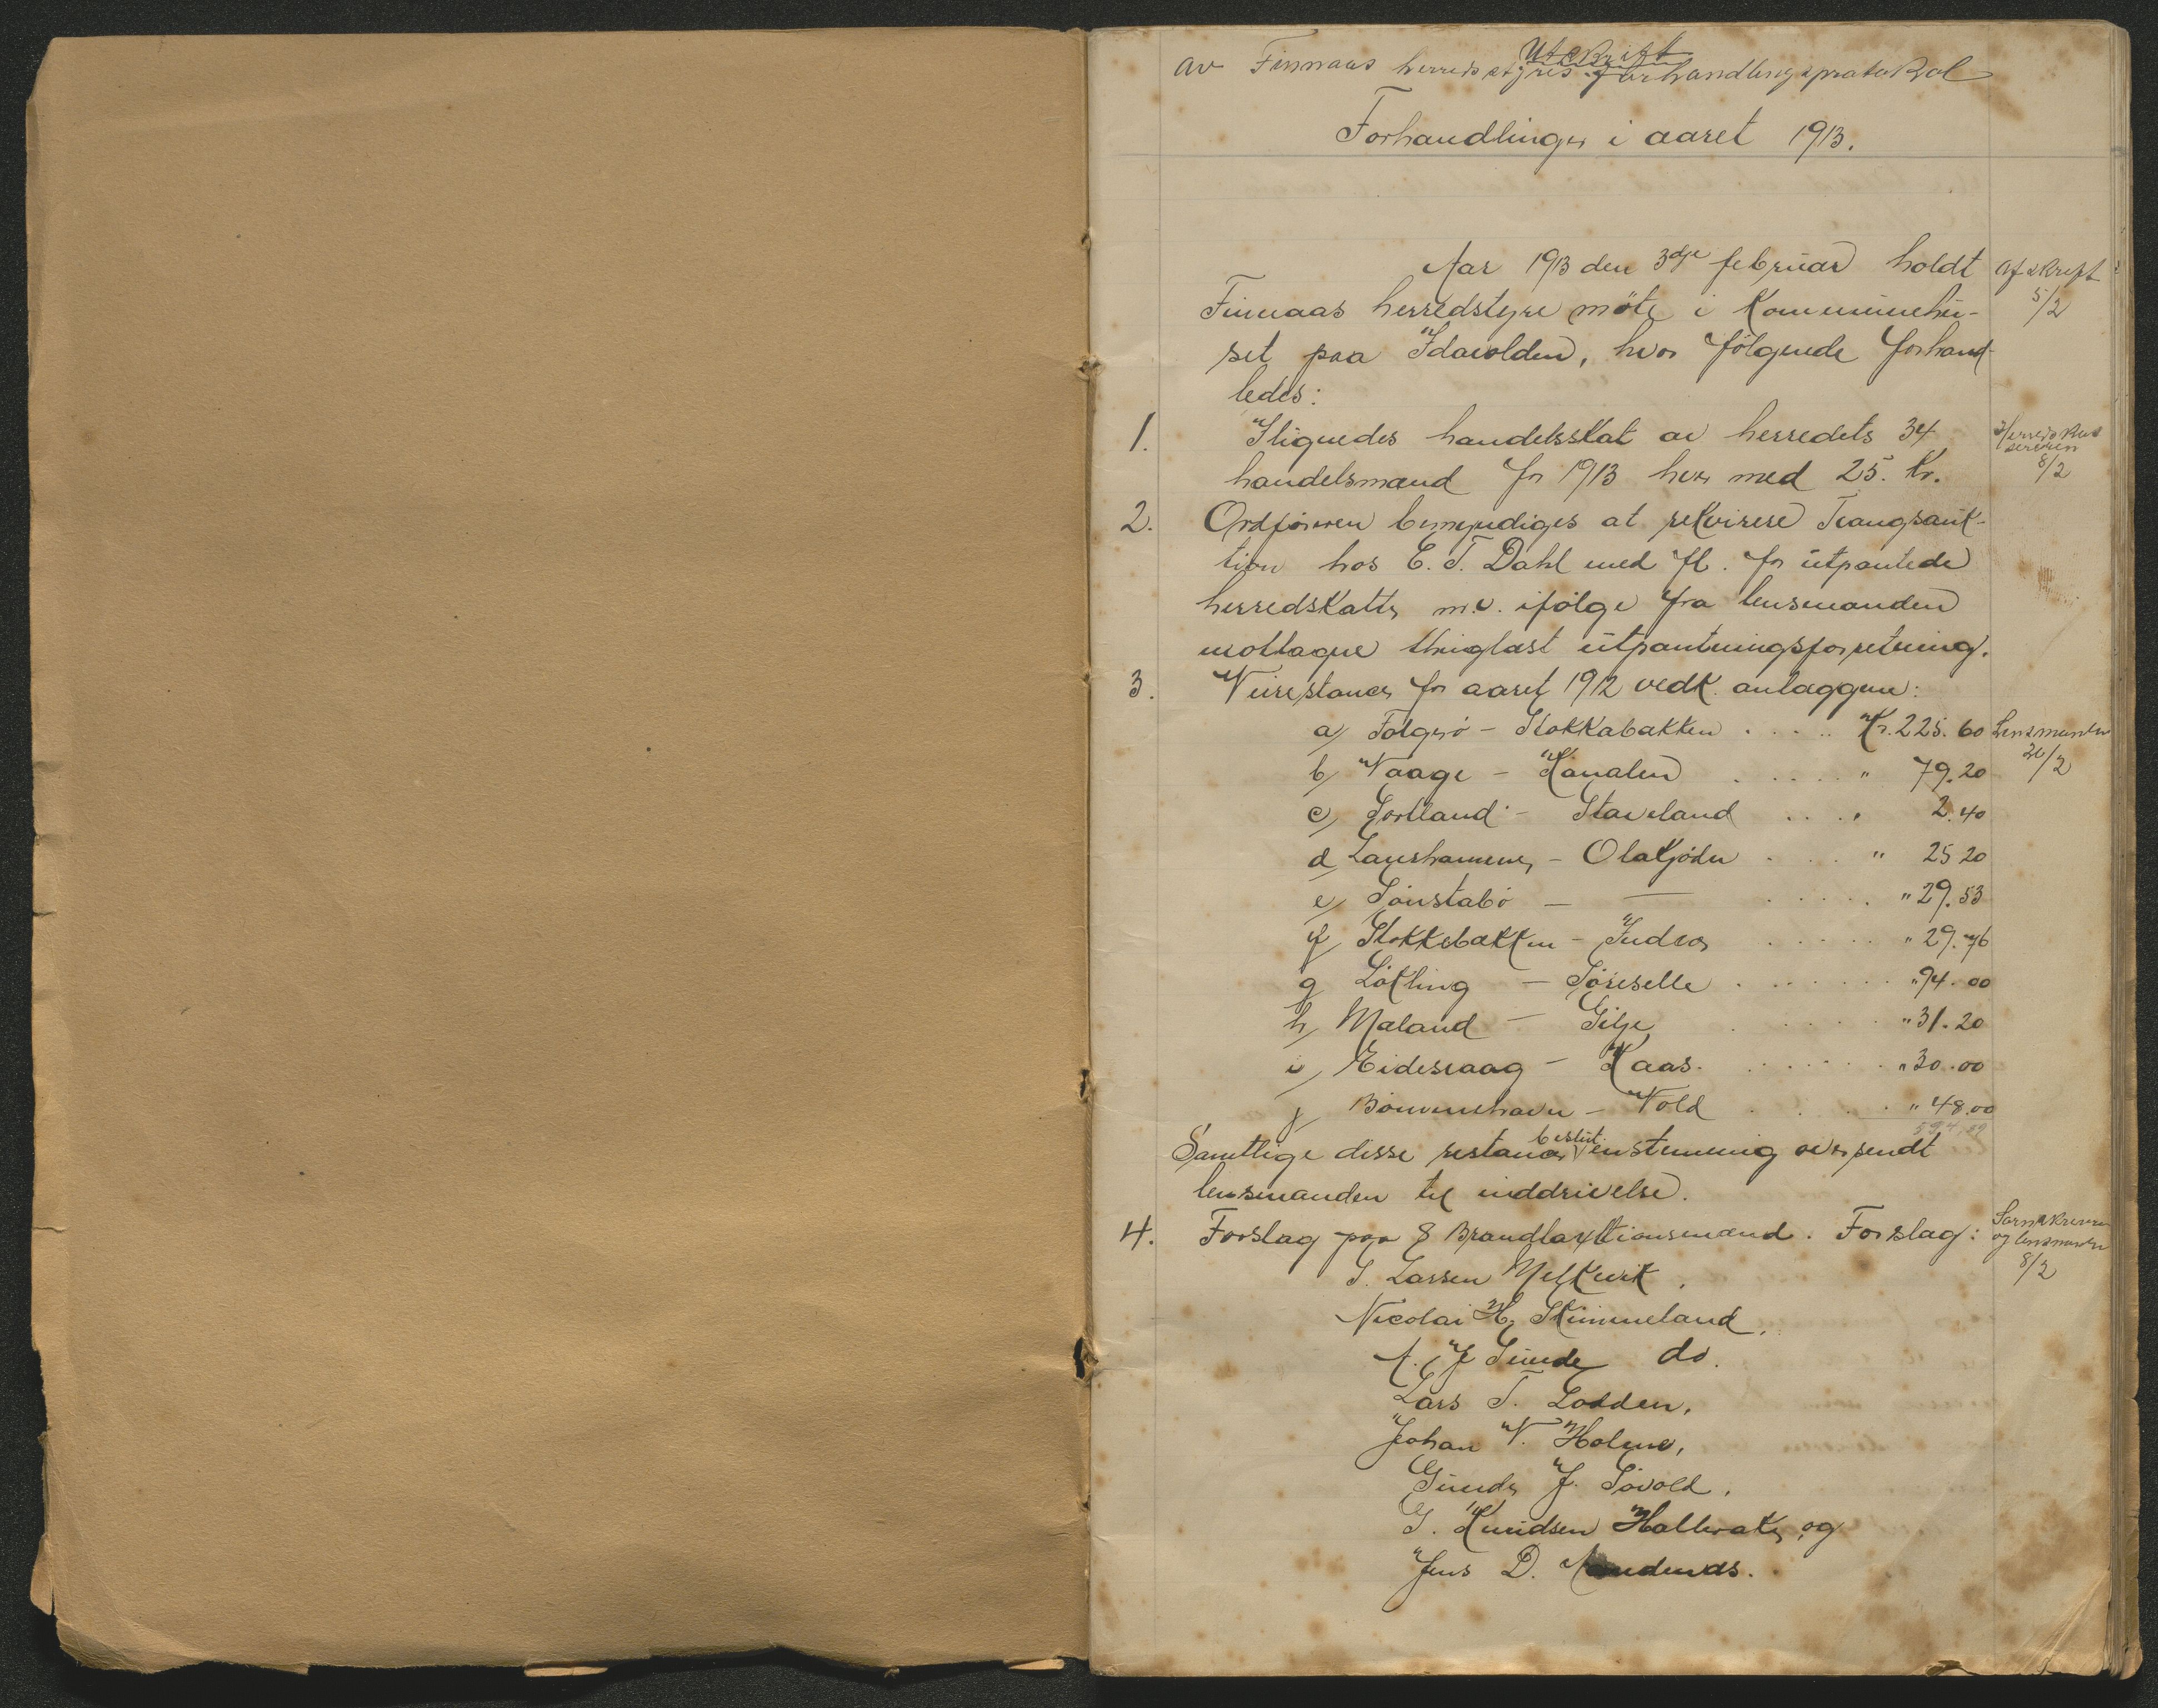 Utskrift
av Finnaas herredsstyres forhandlingsprotokol
Forhandlinger i aaret 1913.
Aar 1913 den 3dje februar holdt
Afskrift
5/2
Finnaas herredstyre möte i Kommunehu-
set paa Idavolden, hvor fölgende forhand-
ledes:
1. Ilignedes handelsskat av herredets 34
Herredskas
sereren
8/2
handelsmænd for 1913 hver med 25. Kr.
2. Ordföreren bemyndiges at rekvirere Tvangsauk-
tion hos E. T. Dahl med fl. for utpantede
herredskatter m.v. ifölge fra lensmanden
mottagne thinglæst utpantningsforretning.
3. Veirestancer for aaret 1912 vedk. anlæggene:
a, Folgerö - Stokkabakken ..... Kr. 225.60
Lensmanden
20/2
b, Vaage - Kanalen .... " 79.20
c, Gortland - Staveland .... " 2.40
d, Laushammer - Olakjödn ... " 25 20
e, Sönstabö - — ..... " 29.53
f, Stokkebakken - Indre ..... " 29.76
g Lökling - Söreselle ...... " 94.00
h, Mæland - Gilje ..... " 31.20
i, Eidesvaag - Kaas. ..... " 30.00
j, Bömmenshavn - Vold .... " 48.00
Samtlige disse restancer beslut. enstemmig oversendt
lensmanden til inddrivelse.
4. Forslag paa 8 Brandtaxtionsmænd. Forslag:
Sornskriveren
og lensmanden
8/2
S. Larsen Melkevik.
Nicolai H. Skimmeland.
A. J. Sunde do.
Lars T. Lodden.
Johan V. Holme,
Gunder J. Sövold.
G. Knudsen Halleraker, og
Jens D.